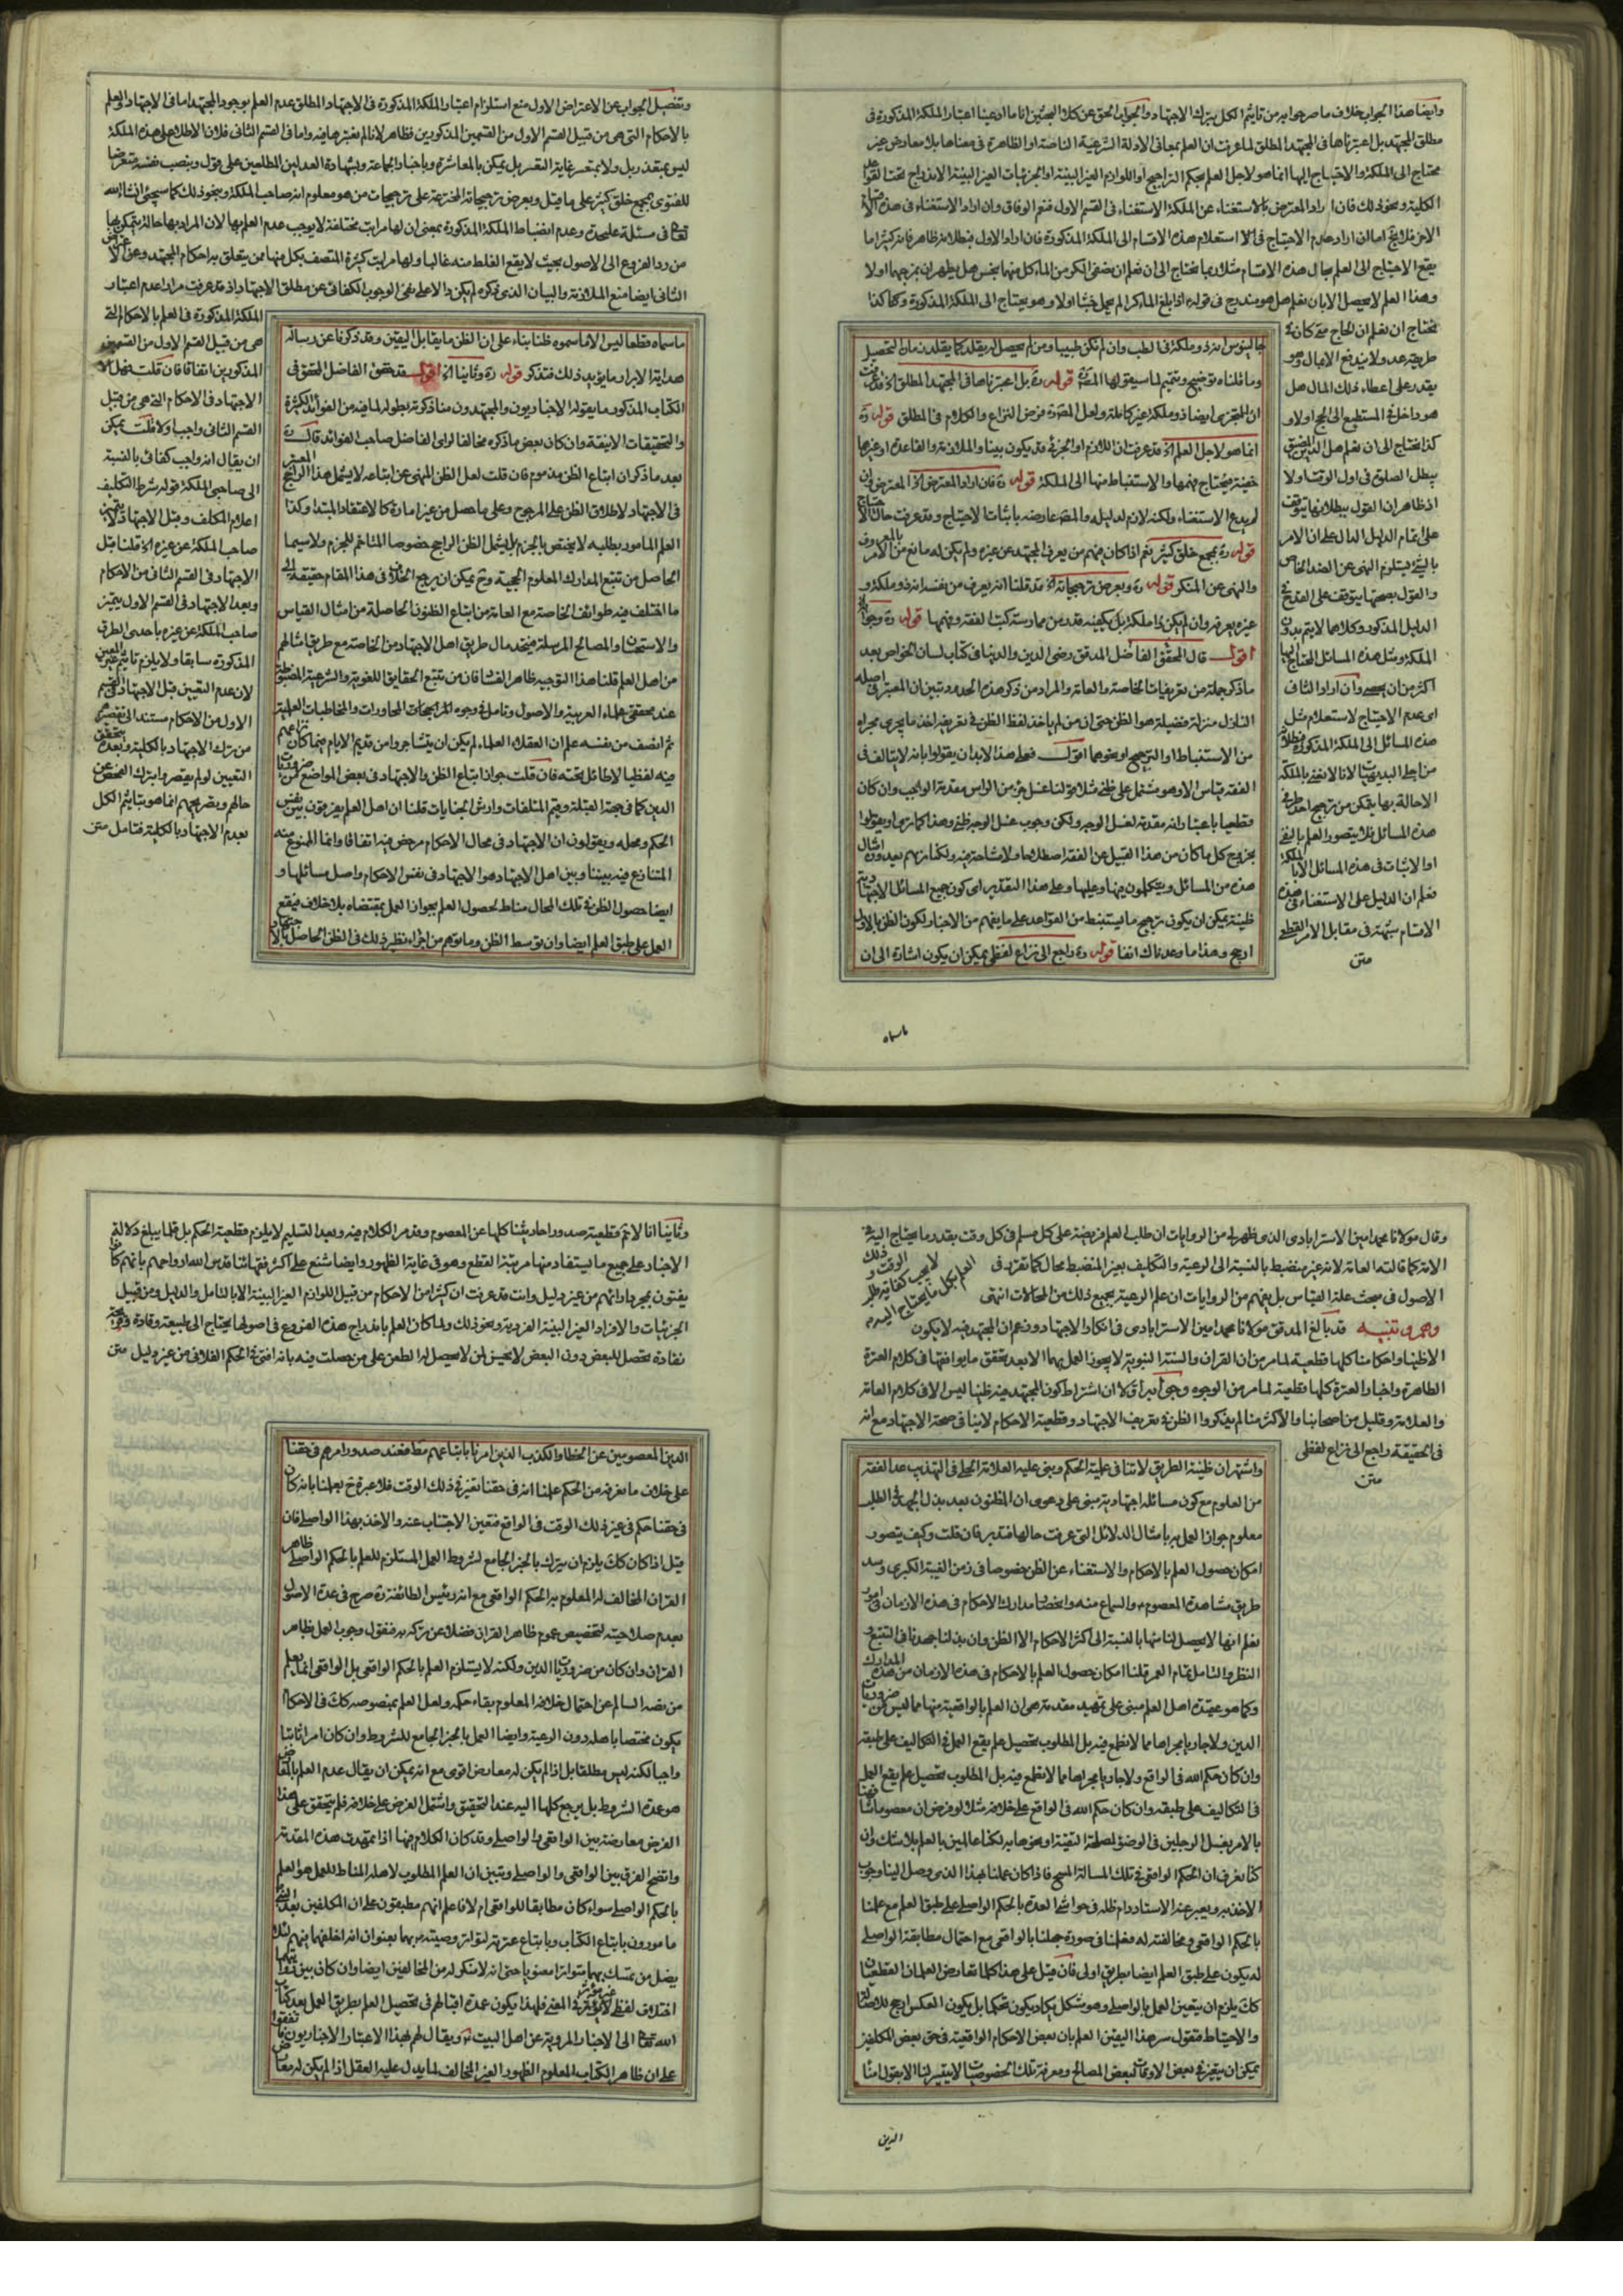 وايضا هذا الجواب خلاف ما صرحوا به من تاثيم الكل بترك الاجتهاد والجواب الحق عن كلا البحثين انا ما ادعينا اعتبار الملكة المذكورة فى
مطلق المجتهد بل اعتبرناها فى المجتهد المطلق لما عرفت ان العلم بمعانى الادلة الشرعية الناصة او الظاهرة فى معناها بلا معارض غير
محتاج الى الملكة والاحتياج اليها انما هو لاجل العلم بحكم التراجيح او اللوازم الغير البينة او الجزئيات الغير البينة الاندراج تحت القواعد
الكلية ونحو ذلك فان اراد المعترض بالاستغناء عن الملكة الاستغناء فى القسم الاول فنعم الوفاق وان اراد الاستغناء فى هذه الاقسام
الاخر فلا يخ اما ان اراد عدم الاحتياج فى استعلام هذه الاقسام الى الملكة المذكورة فان اراد الاول فبطلانه ظاهر فانه كثيرا ما
يقع الاحتياج الى العلم بحال هذه الاقسام مثلا ربما نحتاج الى ان نعلم ان نصفى الكر من الماء كل منهما نجس هل يطهران بمزجهما اولا
وهذا العلم لا يحصل الا بان نعلم هل هو مندرج فى قوله ع اذا بلغ الماء كرا لم يحمل خبثا اولا وهو يحتاج الى الملكة المذكورة وكما كذا
نحتاج ان نعلم ان الحاج متى كان فى
طريقه عدو لا يندفع الا بمال وهو
يقدر على اعطاء ذلك المال هل
هو داخل فى المستطيع الى الحج اولا و
كذا نحتاج الى ان نعلم هل الدين المضيق
يبطل الصلوة فى اول الوقت اولا
اذ ظاهر ان القول ببطلانها يتوقف
على اتمام الدليل الدال على ان الامر
بالشئ يستلزم النهى عن الضد الخاص
والقول بصحتها يتوقف على القدح فى
الدليل المذكور وكلاهما لا يتم بدون
الملكة ومثل هذه المسائل المحتاج اليها
اكثر من ان يحصى وان اراد الثانى
اى عدم الاحتياج لاستعلام مثل
هذه المسائل الى الملكة المذكورة فبطلانه
من اجلى البديهيات لانا لا نعنى بالملكة
الا حالة بها يتمكن من ترجيح احد طرفى
هذه المسائل فلا يتصور العلم بالنفى
او الاثبات فى هذه المسائل الا بالملكة
نعلم ان الدليل على الاستغناء فى هذه
الاقسام شبهة فى مقابل الامر القطعى
منن
جالينوس انه ذو ملكة فى الطب وان لم نكن طبيبا ومن لم يحصل له يقلد كما يقلد زمان التحصيل
وما قلناه توضيح وتتميم لما سيقولها المصره قوله ره بل اعتبرناها فى المجتهد المطلق اه قد عرفت
ان المتجزى ايضا ذو ملكة غير كاملة ولعل المصره فرض النزاع والكلام فى المطلق قوله ره
انما هو لاجل العلم اه قد عرفت ان اللازم او الجزئى قد يكون بينا والملازمة والقاعدة او غيرها
خفية فيحتاج فهمها والاستنباط منها الى الملكة قوله ره فان اراد المعترض اه المعترض وان
لم يدع الاستغناء ولكنه لازم لدليله والمصره عارضه باثبات الاحتياج وقد عرفت حال الاحتياج
قوله ره بجمع خلق كثير نعم اذا كان فيهم من يعرف المجتهد عن غيره ولم يكن له مانع من الامر بالمعروف
والنهى عن المنكر قوله ره وبعرض ترجيحاته اه قد قلنا انه يعرف من نفسه انه ذو ملكة و
غيره يعرفه وان لم يكن ذا ملكة بل يكفيه قدر من ممارسة كتب الفقه وفهمها قوله ره وجوابه
اقول قال المحقق الفاضل المدقق رضى الدين والدنيا فى كتاب لسان الخواص بعد
ما ذكر جملة من تعريفات الخاصة والعامة والمراد من ذكر هذه الحدود تبين ان المعتبر فى اصله
النازل منزلة فضيلة هو الظن حتى ان من لم ياخذ لفظ الظن فى تعريفه اخذ ما يجرى مجراه
من الاستنباط او الترجيح او نحوهما اقول فعلى هذا لابد ان يقولوا بانه لا يتالف فى
الفقه قياس الا وهو مشتمل على ظنى مثلا قولنا غسل جزء من الراس مقدمة الواجب وان كان
قطعيا باعتبار انه مقدمة لغسل الوجه ولكن وجوب غسل الوجه ظنى وهذا كما ترى او يقولوا
بخروج كل ما كان من هذا القبيل عن الفقه اصطلاحا ولا مشاحة فيه ولكنا نريهم يعدون امثال
هذه من المسائل ويتكلمون فيها وعليها وعلى هذا التقدير اى كون جميع المسائل الاجتهادية
ظنية يمكن ان يكون ترجيح ما يستنبط من القواعد على ما يفهم من الاخبار لكون الظن بالاول
ارجح وهذا ما وعدناك انفا قوله ره راجع الى نزاع لفظى يمكن ان يكون اشارة الى ان
ماسماه
وتفصيل الجواب عن الاعتراض الاول منع استلزام اعتبار الملكة المذكورة فى الاجتهاد المطلق عدم العلم بوجود المجتهد اما فى الاجتهاد والعلم
بالاحكام التى هى من قبيل القسم الاول من القسمين المذكورين فظاهر لانا لم نعتبرها فيه واما فى القسم الثانى فلان الاطلاع على هذه الملكة
ليس بمتعذر بل ولا بمتعسر غاية التعسر بل يمكن بالمعاشرة وباخبار الجماعة وبشهادة العدلين المطلعين على قول وبنصب نفسه متعرضا
للفتوى بمجمع خلق كثير على ما قيل وبعرض ترجيحاته المخترعة على ترجيحات من هو معلوم انه صاحب الملكة وبنحو ذلك كما سيجئ انشاء الله
تعالى فى مسئلة عليحدة وعدم انضباط الملكة المذكورة بمعنى ان لها مراتب مختلفة لا يوجب عدم العلم بها لان المراد بها حالة يتمكن بها
من رد الفروع الى الاصول بحيث لا يقع الغلط منه غالبا ولها مراتب كثيرة المتصف بكل منها ممن يتعلق به احكام المجتهد وعن الاعتراض
الثانى ايضا منع الملازمة والبيان الذى تذكره لم يكن دالا على نفى الوجوب الكفائى عن مطلق الاجتهاد اذ قد عرفت مرادا عدم اعتبار
الملكة المذكورة فى العلم بالاحكام التى
هى من قبيل القسم الاول من القسمين
المذكورين اتفاقا فان قلت فعلى هذا
الاجتهاد فى الاحكام التى هى من قبيل
القسم الثانى واجب اولا قلت يمكن
ان يقال انه واجب كفائى بالنسبة
الى صاحبى الملكة قوله شرط التكليف
اعلام المكلف وقبل الاجتهاد لا يتميز
صاحب الملكة عن غيره اه قلنا قبل
الاجتهاد فى القسم الثانى من الاحكام
وبعد الاجتهاد فى القسم الاول يتميز
صاحب الملكة عن غيره باحدى الطرق
المذكورة سابقا ولا يلزم تاثيم غير المعين
لان عدم التعيين قبل الاجتهاد فى القسم
الاول من الاحكام مستند الى تقصيرهم
من ترك الاجتهاد بالكلية وبعده يتحقق
التعيين لو لم يقصروا بترك الفحص عن
حالهم وتصريحهم انما هو بتاثيم الكل
بعدم الاجتهاد بالكلية فتامل منن
ما سماه قطعا ليس الا ما سموه ظنا بناء على ان الظن ما يقابل اليقين وقد ذكرنا عن رسالة
هداية الابرار ما يؤيد ذلك فتذكر قوله ره وثانيا اه اقول قد حقق الفاضل المحقق فى
الكتاب المذكور ما يقوله الاخباريون والمجتهدون منا ذكرته بطوله لما فيه من الفوائد الكثيرة
والتحقيقات الانيقة وان كان بعض ما ذكره مخالفا لراى الفاضل صاحب الفوائد قال ره
بعد ما ذكر ان اتباع الظن مذموم فان قلت لعل الظن المنهى عن اتباعه لا يشمل هذا الراجح المعتبر
فى الاجتهاد لاطلاق الظن على المرجوح وعلى ما حصل من غير امارة كالاعتقاد المبتدا وكذا
العلم المامور بطلبه لا يختص بالجزم بل يشمل الظن الراجح خصوصا المتاخم للجزم ولا سيما
الحاصل من تتبع المدارك المعلوم الحجية وح يمكن ان يرجع الخلاف فى هذا المقام حقيقة الى
ما اختلف فيه طوائف الخاصة مع العامة من اتباع الظنون الحاصلة من امثال القياس
والاستحسان والمصالح المرسلة فيتحد مال طريق اهل الاجتهاد من الخاصة مع طريق امثالهم
من اهل العلم قلنا هذا التوجيه ظاهر الفساد فان من تتبع الحقايق اللغوية والشرعية المنطبق
عند محققى علماء العربية والاصول وتامل فى وجوه المراجعات المحاورات والمخاطبات العلمية
ثم انصف من نفسه علم ان العقلاء العلماء لم يكن ان يتشاجروا من قديم الايام فيما كان نزاعهم
فيه لفظيا لا طائل تحته فان قلت جواز اتباع الظن والاجتهاد فى بعض المواضع من ضروريات
الدين كما فى جهة القبلة وقيم المتلفات وارش الجنايات قلنا ان اهل العلم يفرقون بين نفس
الحكم ومحله ويقولون ان الاجتهاد فى محال الاحكام مرخص فيه اتفاقا وانما الممنوع منه
المتنازع فيه بيننا وبين اهل الاجتهاد هو الاجتهاد فى نفس الاحكام واصل مسائلها و
ايضا حصول الظن فى تلك المحال مناط لحصول العلم بجواز العمل بمقتضاه بلا خلاف فيقع
العمل على طبق العلم ايضا وان توسط الظن وما توهم من اجراء نظير ذلك فى الظن الحاصل بالاجتهاد
وقال مولانا محمد امين الاسترابادى الذى ظهر لى من الروايات ان طلب العلم فريضة على كل مسلم فى كل وقت بقدر ما يحتاج اليه فى ذلك الوقت و
لا يجب كفاية طلب العلم بكل ما يحتاج اليه
الامة كما قالت العامة لانه غير منضبط بالنسبة الى الرعية والتكليف بغير المنضبط محال كما تقرر فى
الاصول فى مبحث علة القياس بل يفهم من الروايات ان علم الرعية بجميع ذلك من المحالات انتهى
وهم وتنبيه قد بالغ المدقق مولانا محمد امين الاسترابادى فى انكار الاجتهاد وزعم ان المجتهد فيه لا يكون
الا ظنيا واحكامنا كلها قطعية لما مر من ان القران والسنة النبوية لا يجوز العمل بهما الا بعد تحقق ما يوافقها فى كلام العترة
الطاهرة واخبار العترة كلها قطعية لما مر من الوجوه وجوابه اولا ان اشتراط كون المجتهد فيه ظنيا ليس الا فى كلام العامة
والعلامة وقليل من اصحابنا والاكثر منا لم يذكروا الظن فى تعريف الاجتهاد وقطعية الاحكام لا ينافى صحة الاجتهاد مع انه
فى الحقيقة راجع الى نزاع لفظى
منن
واشتهر ان ظنية الطريق لا تنافى علمية الحكم وبنى عليه العلامة الحلى فى التهذيب عد الفقه
من العلوم مع كون مسائله اجتهادية مبنى على دعوى ان المظنون بعد بذل الجهد فى الطلب
معلوم جواز العمل به بامثال الدلائل التى عرفت حالها فتدبر فان قلت وكيف يتصور
امكان حصول العلم بالاحكام والاستغناء عن الظن خصوصا فى زمن الغيبة الكبرى وسد
طريق مشاهدة المعصوم ع والسماع منه وانحصار مدارك الاحكام فى هذه الازمان فى امور
نعلم انها لا يحصل لنا منها بالنسبة الى اكثر الاحكام الا الظن وان بذلنا جهدنا فى التتبع و
النظر والتامل تمام العمر قلنا امكان حصول العلم بالاحكام فى هذه الازمان من هذه المدارك
وكما هو عقيدة اهل العلم مبنى على تمهيد مقدمة هى ان العلم بالواقعية منها مما ليس من ضروريات
الدين ولا جاريا مجراها مما لا نطمع فيه بل المطلوب تحصيل علم يقع العمل فى التكاليف على طبقه
وان كان حكم الله فى الواقع ولا جاريا مجراها مما لا نطمع فيه بل المطلوب تحصيل علم يقع العمل
فى التكاليف على طبقه وان كان حكم الله فى الواقع على خلافه مثلا لو فرض ان معصوما شافهنا
بالامر بغسل الرجلين فى الوضوء لمصلحة التقية او نحوها به لكنا عالمين بالعلم بلا شك وان
كنا نعرف ان الحكم الواقعى فى تلك المسالة المسح فاذا كان عملنا بهذا الذى وصل الينا وجوب
الاخذ به ويعبر عنه الاستاد دام ظله فى حواشى العدة بالحكم الواصلى على طبق العلم مع علمنا
بالحكم الواقعى ومخالفته له فعلمنا فى صورة جهلنا بالواقعى مع احتمال مطابقة الواصلى
له يكون على طبق العلم ايضا بطريق اولى فان قيل على هذا كلما تعارض العلمان القطعيان
كك يلزم ان يتعين العمل بالواصلى وهو مشكل يكاد يكون تحكما بل يكون العكس ارجح للاصالة
والاحتياط فنقول سر هذا اليقين العلم بان بعض الاحكام الواقعية فى حق بعض المكلفين
يمكن ان يتغير فى بعض الاوقات لبعض المصالح ومعرفة تلك الخصوصيات لا يتيسر لنا الا بقول امنا
الدين
وثانيا انا لا نتم قطعية صدور احاديثنا كلها عن المعصوم وقد مر الكلام فيه وبعد التسليم لا يلزم قطعية الحكم بل قلما يبلغ دلالة
الاخبار على جميع ما يستفاد منها مرتبة القطع وهو فى غاية الظهور وايضا شنع على اكثر فقهائنا قدس الله ارواحهم بانهم كانوا
يفتون بمجرد ارائهم من غير دليل وانت قد عرفت ان كثيرا من الاحكام من قبيل اللوازم الغير البينة الا بالتامل والدليل ومن قبيل
الجزئيات والافراد الغير البينة الفردية ونحو ذلك ولما كان العلم باندراج هذه الفروع فى اصولها يحتاج الى طبيعة وقادة وقريحة
نقادة تحصل للبعض دون البعض لا يحسن لمن لا يحصل له الطعن على من حصلت فيه بانه افتى فى الحكم الفلانى من غير دليل منن
الدين المعصومين عن الخطا والكذب الذين امرنا باتباعهم مط فعند صدور امرهم فى حقنا
على خلاف ما نعرفه من الحكم علمنا انه فى حقنا تغير فى ذلك الوقت فلا عبرة ح بعلمنا بانه كان
فى حقنا حكم فى غير ذلك الوقت فى الواقع فتعين الاجتناب عنه والاخذ بهذا الواصلى فان
قيل اذا كان كك يلزم ان يترك بالخبر الجامع لشروط العمل المستلزم للعلم بالحكم الواصلى ظاهر
القران المخالف له المعلوم به الحكم الواقعى مع انه رئيس الطائفة ره صرح فى عدة الاصول
بعدم صلاحيته لتخصيص عموم ظاهر القران فضلا عن تركه به فنقول وجوب العمل بظاهر
القران وان كان من ضروريات الدين ولكنه لا يستلزم العلم بالحكم الواقعى بل الواقعى انما يعلم
من نصه السالم عن احتمال خلافه المعلوم بقاء حكمه ولعل العلم بمنصوصه كك فى الاحكام
يكون مختصا باهله دون الرعية وايضا العمل بالخبر الجامع للشروط وان كان امرا ثابتا
واجبا لكنه ليس مطلقا بل اذا لم يكن له معارض اقوى مع انه يمكن ان يقال عدم العلم بالمعارض
هو عمدة الشروط بل يرجع كلها اليه عند التحقيق واشتمل الفرض على خلافه فلم يتحقق على هذا
الفرض معارضة بين الواقعى والواصلى وقد كان الكلام فيها اذا تمهدت هذه المقدمة
واتضح الفرق بين الواقعى والواصلى وتبين ان العلم المطلوب لاهله المناط للعمل هو العلم
بالحكم الواصلى سواء كان مطابقا للواقعى ام لا فاعلم انهم مطبقون على ان المكلفين بعد النبى
مامورون باتباع الكتاب وباتباع عترته لتواتر وصيته ع بهما بعنوان انه اخلفهما فيهم لئلا
يضل من تمسك بهما متواترا معنويا حتى انه لا منكر له من المخالفين ايضا وان كان بين نقلها
اختلاف لفظى غير مؤثر فى المعنى فلهذا يكون عمدة اقبالهم فى تحصيل العلم بطريق العمل بعد كتاب
الله تعالى الى الاخبار المروية عن اهل البيت ع ويقال لهم لهذا الاعتبار الاخباريون فاتفقوا
على ان ظاهر الكتاب المعلوم الظهور الغير المخالف لما يدل عليه العقل اذا لم يكن له معارض